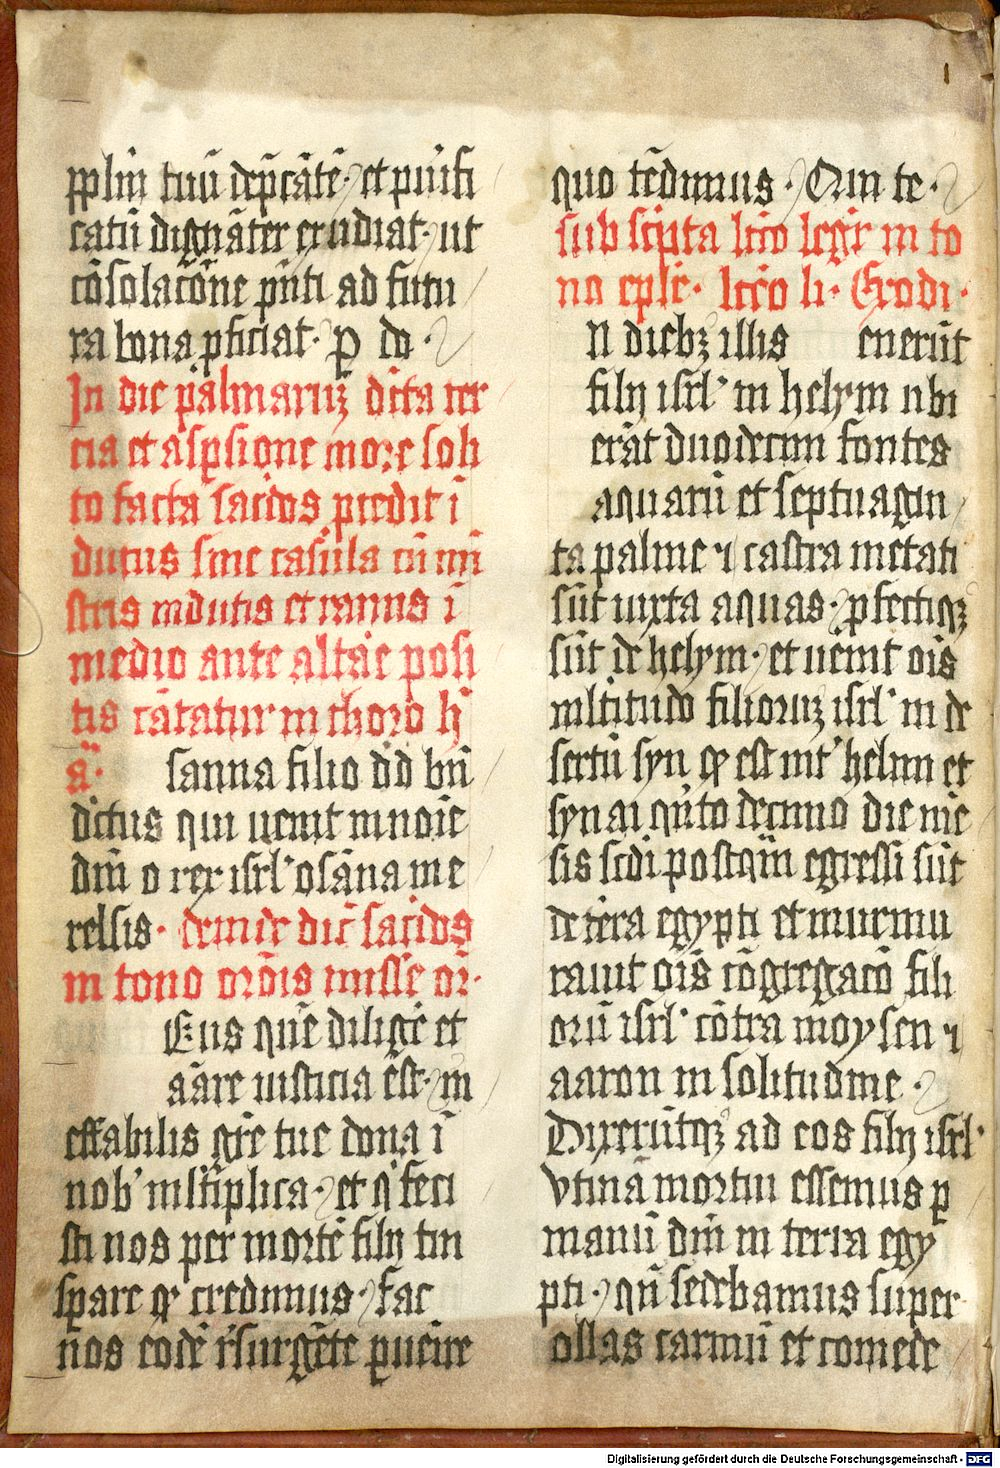 pplm̄ tuū dep̄cātē et puifi
catū dignāter erudiat ut
cōsolacōne pn̄ti ad futu
ra bona pficiat · P do ·
In die palmaruꝫ dicta ter
cia et aspsione more soli
to facta sacdos predit ī
dutus sine casula cū mī
stris indutis et ramis ī
medio ante altāe posi
tis cātatur in choro h̄
a ·
sanna filio dd bn̄
dictus qui uenit in noīe
dn̄i o rex isrl' osāna in e
xelsis · deinde dic̄ sacdos
in tono orōis misse or̄ ·
Eus quē diligē et
aāre iusticia est · in
effabilis grē tue dona ī
nob' mltiplica · et q feci
sti nos per mortē filij tui
spare q credimus · fac
nos eodē rsurgēte puēire
quo tēdimus · Qui te ·
sub scipta lcō legr in to
no eple · lcō li · Exodi ·
N diebꝫ illis
enerūt
filij isrl' in helym ubi
erāt duodecim fontes
aquarū et septuagin
ta palme ⁊ castra metati
sūt iuxta aquas · pfectiqꝫ
sūt de helym · et uenit oīs
mltitudo filioruꝫ isrl' in de
sertū syn q est int' helim et
synai qūto decimo die mē
sis scdi postqm̄ egressi sūt
de terra egypti et murmu
rauit oīs cōgregacō fili
orū isrl' cōtra moysen ⁊
aaron in solitudine ·
Dixerūtqꝫ ad eos filij isrl'
Vtinā mortui essemus p
manū dn̄i in terra egy
pti · qn̄ sedebamus super
ollas carniū et comede
1
Digitalisierung gefördert durch die Deutsche Forschungsgemeinschaft - DFG